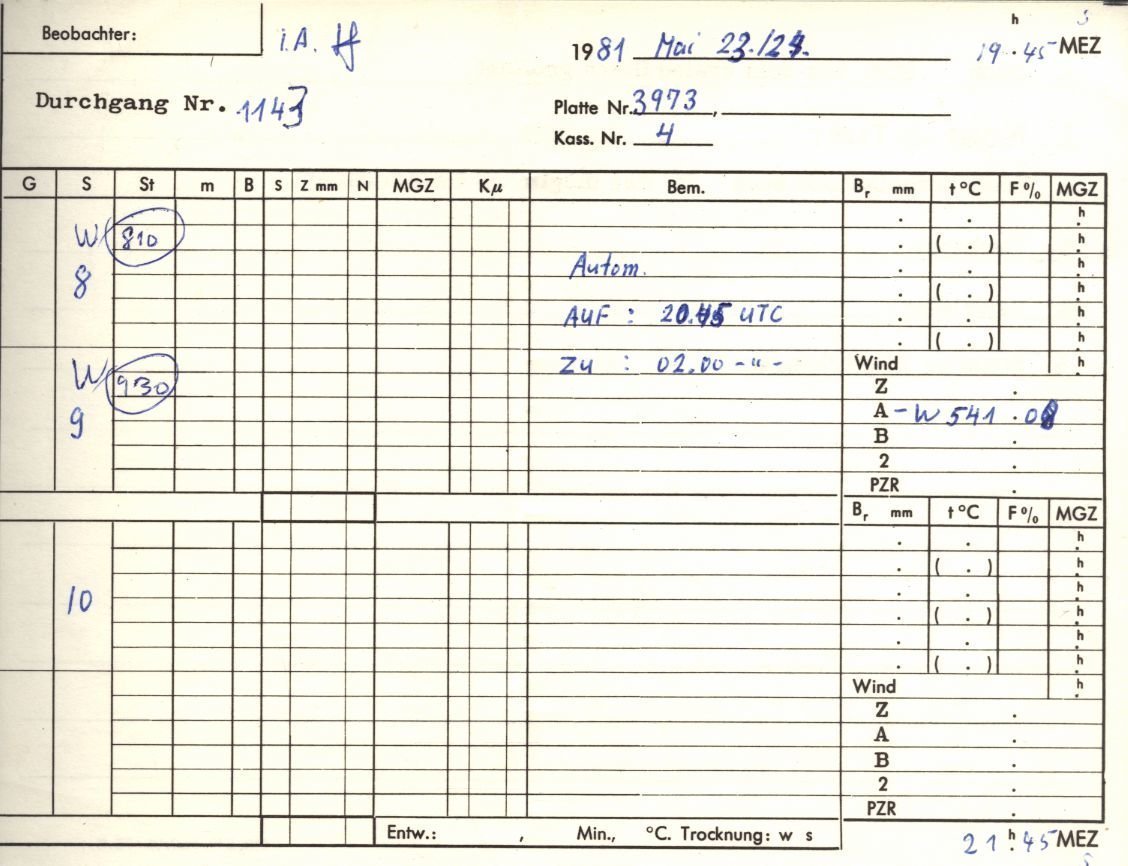 Beobachter: i.A.
1981 Mai 23./24. 19 h 45 MEZ
Durchgang Nr. 1143
Platte Nr. 3973,
Kass. Nr. 4
G S St m B S Z mm N MGZ Kμ Bem. Br mm t °C F % MGZ
. . h
W 810 . ( . ) h
8 Autom. . . h
. ( . ) h
AUF : 20.45 UTC . . h
. ( . ) h
W 930 ZU : 02.00 -"- Wind h
Z .
9 A - W 541 .08
B .
2 .
PZR .
Br mm t °C F % MGZ
. . h
. ( . ) h
10 . . h
. ( . ) h
. . h
. ( . ) h
Wind h
Z .
A .
B .
2 .
PZR .
Entw.: , Min., °C. Trocknung: w s
21 h 45 MEZ